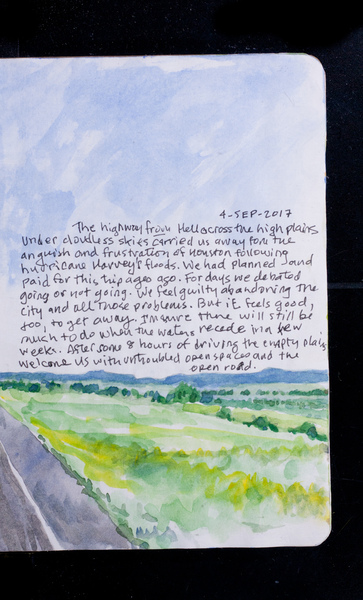 4-SEP-2017
The highway from Hell across the high plains
Under cloudless skies carried us away form the
anguish and frustration of Houston following
hurricane Harvey's floods. We had planned - and
paid for this trip ages ago. For days we debated
going or not going. We feel guilty abandoning the
city and all those problems. But it feels good,
too, to get away. I'm sure there will still be
much to do when the waters recede in a few
weeks. After some 8 hours of driving the empty plains
welcome us with untroubled open spaces and the
open road.